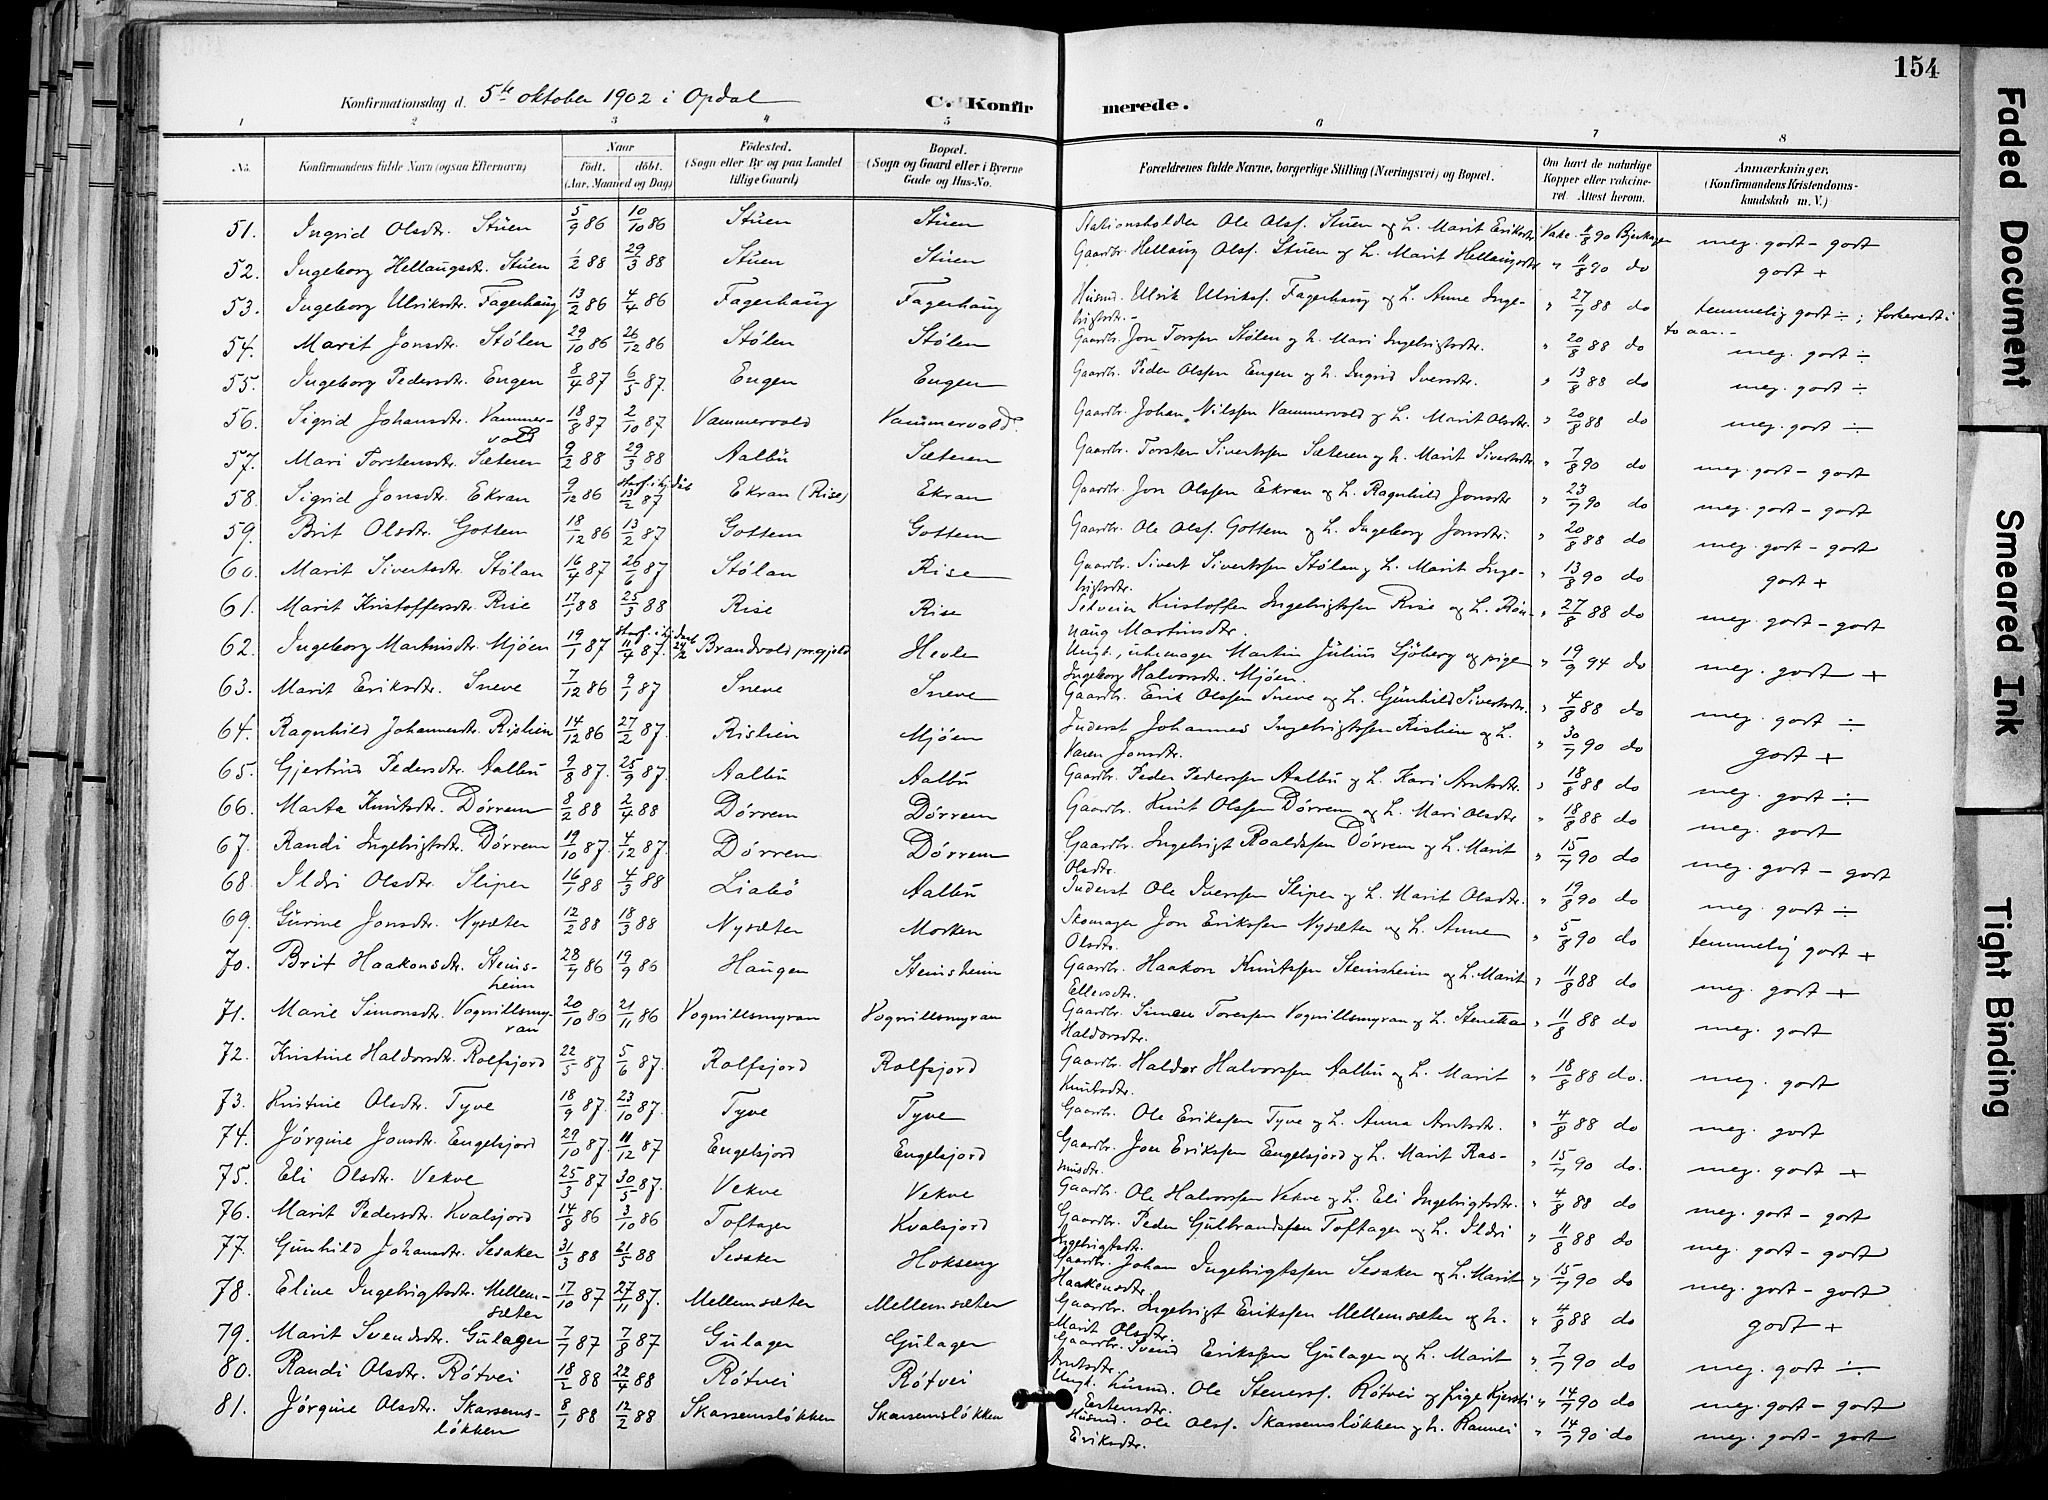 154
Konfirmationsdag d. 5te oktober 1902 i Opdal C. Konfirmerede.
1 2 3 4 5 6 7 8
No. Konfirmandens fulde Navn (ogsaa Efternavn) Naar født. døbt. (Aar, Maaned og Dag) Fødested. (Sogn eller By og paa Landet tillige Gaard) Bopæl. (Sogn og Gaard eller i Byerne Gade og Hus-No. Forældrenes fulde Navne, borgerlige Stilling (Næringsvei) og Bopæl. Om havt de naturlige Kopper eller vakcineret. Attest herom. Anmærkninger. (Konfirmandens Kristendomskundskab m. V.)
51. Ingrid Olsdtr. Stuen 5/9 86 10/10 86 Stuen Stuen Stationsholder Ole Olsf. Stuen og h. Marit Eriksdtr. Vakc. 11/8 90 Bjerkager meg. godt - godt
52. Ingeborg Hellaugsdtr. Stuen 1/2 88 29/3 88 Stuen Stuen Gaardbr. Hellaug Olsf. Stuen og h. Marit Hellaugsdtr. " 11/8 90 do godt +
53. Ingeborg Ulriksdtr. Fagerhaug 13/2 86 4/4 86 Fagerhaug Fagerhaug Husmd. Ulrik Ulriksf. Fagerhaug og h. Anne Inge-
brigtsdtr. - " 27/7 88 do temmelig godt ÷ ; forberedt i
to aar. -
54. Marit Jonsdtr. Stølen 29/10 86 26/12 86 Stølen Stølen Gaardbr. Jon Torssen Stølen og h. Mari Ingebrigtsdtr. " 20/8 88 do meg. godt ÷
55. Ingeborg Pedersdtr. Engen 8/4 87 6/5 87. Engen Engen Gaardbr. Peder Olssen Engen og h. Ingrid Iversdtr. " 13/8 88 do meg. godt ÷
56. Sigrid Johansdtr. Vammer-
vold 18/8 87 2/10 87 Vammervold Vammervold. Gaardbr. Johan Nilssen Vammervold og h. Marit Olsdtr. " 20/8 88 do meg. godt ÷
57. Mari Torstensdtr. Sæteren 9/2 88 29/3 88 Aalbu Sæteren Gaardbr. Torsten Sivertssen Sæteren og h. Marit Sivertsdtr. " 7/8 90 do meg. godt - godt
58. Sigrid Jonsdtr. Ekran 9/12 86 13/2 87 Ekran (Rise) Ekran Gaardbr. Jon Olssen Ekran og h. Ragnhild Jonsdtr " 23/7 90 do meg. godt - godt
59. Brit Olsdtr. Gottem 18/12 86 13/2 87 Gottem Gottem Gaardbr. Ole Olsf. Gottem og h. Ingeborg Jonsdtr. " 20/8 88 do meg. godt - godt
60. Marit Sivertsdtr. Stølan 16/4 87 26/6 87 Stølan Rise Gaardbr. Sivert Sivertssen Stølan og h. Marit Inge-
brigtsdtr. " 13/8 90 do godt +
61. Marit Kristoffersdtr. Rise 17/1 88 25/3 88 Rise Rise Kristoffer Ingebrigtssen Rise og h. Røn-
naug Martinsdtr. " 27/8 88 do meg. godt - godt
62. Ingeborg Martinsdtr. Mjøen 19/1 87 11/4 87. Brandvold prgjeld Hevle Ungk., urmager Martin Julius Sjøberg og pige
Ingeborg Halvorsdtr. Mjøen. " 19/9 94 do meg. godt +
63. Marit Eriksdtr. Sneve 7/12 86 9/1 87 Sneve Sneve Gaardbr. Erik Olssen Sneve og h. Gunhild Sivertsdtr. " 4/8 88 do meg. godt ÷
64. Ragnhild Johannesdtr. Rislien 14/12 86 27/2 87. Rislien Mjøen Inderst Johannes Ingebrigtssen Rislien og h.
Karen Jonsdtr. " 30/7 90 do godt +
65. Gjertrud Pedersdtr. Aalbu 9/8 87. 25/9 87. Aalbu Aalbu Gaardbr. Peder Pederssen Aalbu og h. Kari Arntsdtr. " 18/8 88 do meg. godt ÷
66. Marta Knutsdtr. Dørrem 8/2 88 2/4 88 Dørrem Dørrem Gaardbr. Knut Olssen Dørrem og h. Mari Olsdtr " 18/8 88 do meg. godt
67. Randi Ingebrigtsdtr. Dørrem 19/10 87. 4/12 87. Dørrem Dørrem Gaardbr. Ingebrigt Roaldssen Dørrem og h. Marit
Olsdtr. " 15/7 90 do meg. godt - godt
68. Ildri Olsdtr. Sliper 16/1 88 4/3 88 Liabø Aalbu Inderst Ole Iverssen Sliper og h. Marit Olsdtr. " 19/8 90 do meg. godt ÷
69. Gurine Jonsdtr. Nysæter 12/2 88 18/3 88 Nysæter Morken Skomager Jon Erikssen Nysæter og h. Anne
Olsdtr. " 5/8 90 do temmelig godt +
70. Brit Haakonsdtr. Steins-
heim 28/7 86 19/9 86 Haugen Steinsheim Gaardbr. Haakon Knutssen Steinsheim og h. Marit
Ellevsdtr. " 11/8 88 do meg. godt +
71. Marie Simonsdtr. Vognillsmy-
ran 20/10 86 21/11 86 Vognillsmyran Vognillsmyran Gaardbr. Simon Toressen Vognillsmyran og h.
Haldorsdtr. " 11/8 88 do meg. godt
72. Kristine Haldorsdtr. Rolfsjord 22/5 87 5/6 87. Rolfsjord Rolfsjord Gaardbr. Haldor Halvorssen Aalbu og h. Marit
Knutsdtr. " 18/8 88 do. meg. godt
73. Kristine Olsdtr. Tyve 18/9 87. 23/10 87. Tyve Tyve Gaardbr. Ole Erikssen Tyve og h. Anna Arntsdtr. " 4/8 88 do meg. godt
74. Jørgine Jonsdtr. Engelsjord 29/10 87. 11/12 87 Engelsjord Engelsjord Gaardbr. Jon Erikssen Engelsjord og h. Marit Ras-
musdtr. " 15/7 90 do. meg. godt +
75. Eli Olsdtr. Vekve 25/3 87 30/5 87. Vekve Vekve Gaardbr. Ole Halvorssen Vekve og h. Eli Ingebrigtsdtr. " 4/8 88 do meg. godt - godt
76. Marit Pedersdtr. Kvalsjord 14/8 86 3/10 86 Toftager Kvalsjord Gaardbr. Peder Gulbrandssen Toftager og h. Ildri
Ingebrigtsdtr. " 11/8 88 do meg. godt - godt
77. Gunhild Johansdtr. Sesaker 31/3 88 21/5 88 Sesaker Hokseng Gaardbr. Johan Ingebrigtssen Sesaker og h. Marit
Haakonsdtr. " 15/7 90 do meg. godt - godt
78. Eline Ingebrigtsdtr. Mellem-
sæter 17/10 87 27/11 87. Mellemsæter Mellemsæter Gaardbr. Ingebrigt Erikssen Mellemsæter og h.
Marit Olsdtr. " 4/8 88 do godt +
79. Marit Svendsdtr. Gulager 7/7 87 7/8 87 Gulager Gulager Gaardbr. Svend Erikssen Gulager og h. Marit
Arntsdtr. " 7/7 90 do meg. godt ÷
80. Randi Olsdtr. Røtvei 18/2 88 22/4 88 Røtvei Røtvei Ungk. husmd. Ole Stenersf. Røtvei og pige Kjersti
Estensdtr. " 14/7 90 do meg. godt - godt
81. Jørgine Olsdtr. Skarsems-
løkken 8/1 88 12/2 88 Skarsemsløkken Skarsemsløkken Husmd. Ole Olsf. Skarsemsløkken og h. Rannei
Eriksdtr. " 14/7 90 do meg. godt - godt
Faded Document
Smeared Ink
Tight Binding